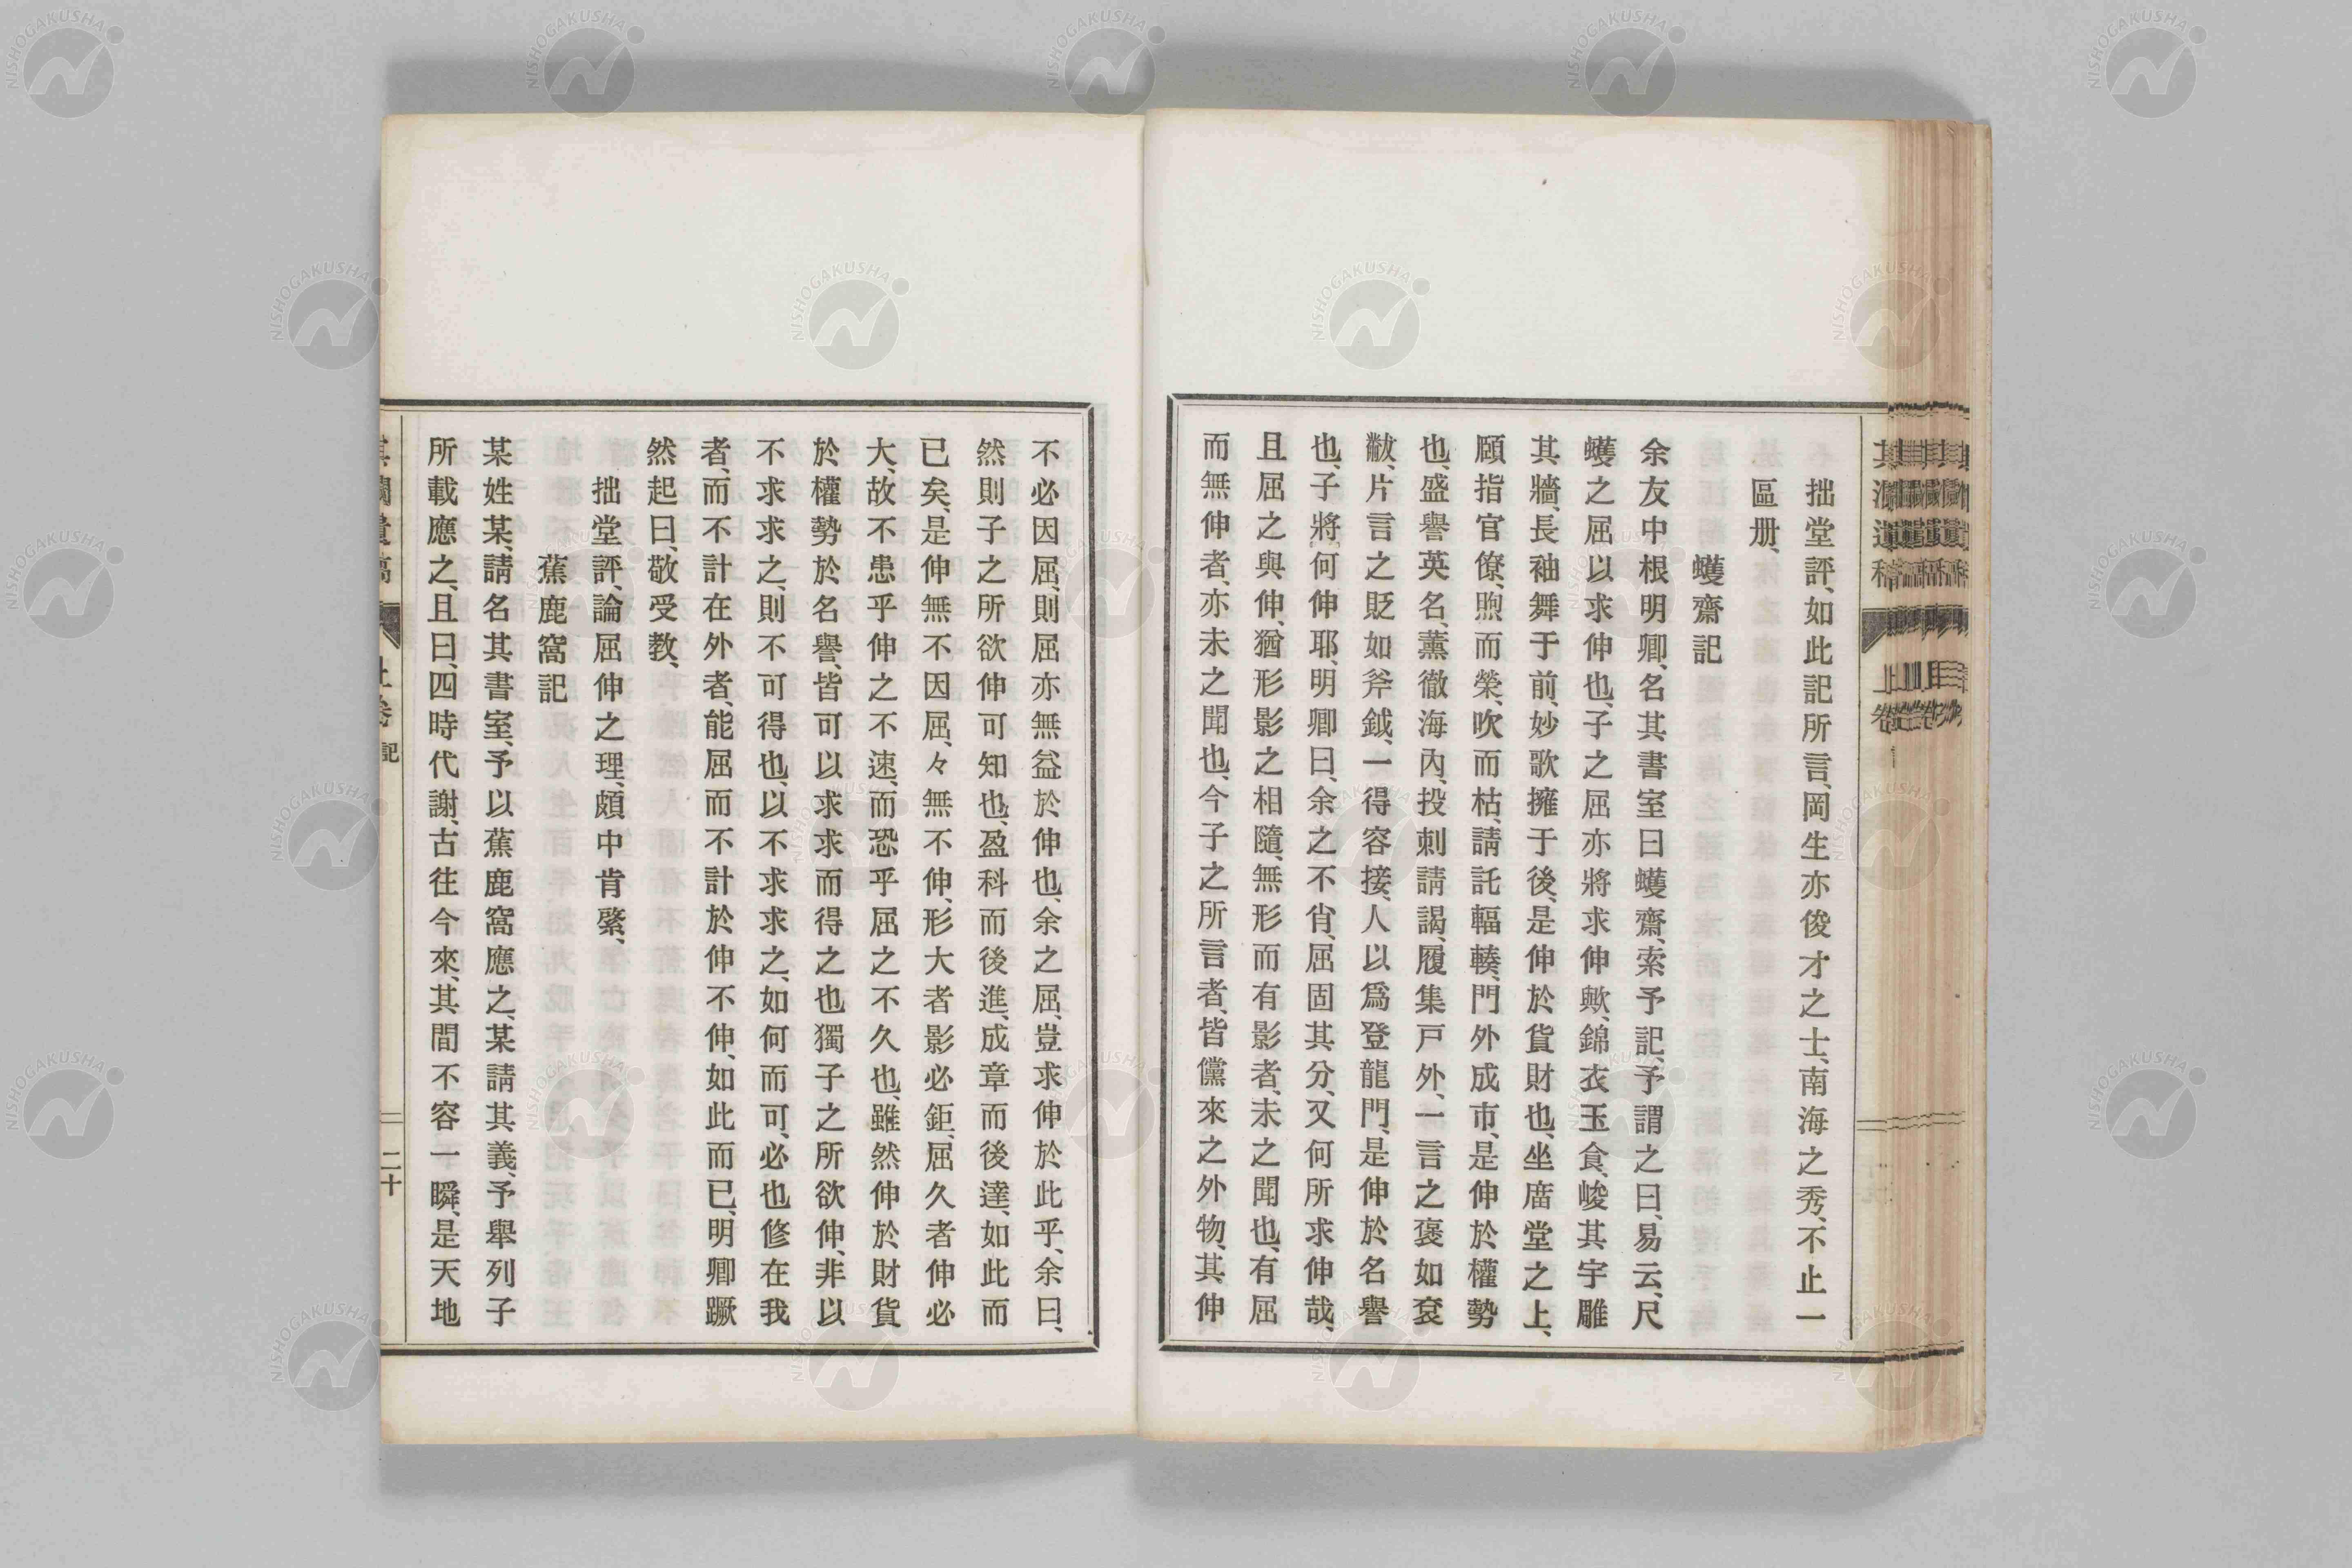 拙堂評、如此記所言、岡生亦俊才之士、南海之秀、不止一
區册、
蠖齋記
余友中根明卿、名其書室曰蠖齋、索予記、予謂之曰、易云、尺
蠖之屈以求伸也、子之屈亦將求伸歟、錦衣玉食、峻其宇雕
其牆、長袖舞于前、妙歌擁于後、是伸於貨財也、坐廣堂之上、
頤指官僚、煦而榮、吹而枯、請託輻輳、門外成市、是伸於權勢
也、盛譽英名、薰徹海內、投刺請謁、履集戸外、一言之褒如袞
黻、片言之貶如斧鉞、一得容接、人以爲登龍門、是伸於名譽
也、子將何伸耶、明卿曰、余之不肖、屈固其分、又何所求伸哉、
且屈之與伸、猶形影之相隨、無形而有影者、未之聞也、有屈
而無伸者、亦未之聞也、今子之所言者、皆儻來之外物、其伸
不必因屈、則屈亦無益於伸也、余之屈、豈求伸於此乎、余曰、
然則子之所欲伸可知也、盈科而後進、成章而後達、如此而
已矣、是伸無不因屈、々無不伸、形大者影必鉅、屈久者伸必
大、故不患乎伸之不速、而恐乎屈之不久也、雖然伸於財貨
於權勢於名譽、皆可以求求而得之也獨子之所欲伸、非以
不求求之、則不可得也、以不求求之、如何而可、必也修在我
者、而不計在外者、能屈而不計於伸不伸、如此而已、明卿蹶
然起曰、敬受教、
拙堂評、論屈伸之理、頗中肯綮、
蕉鹿窩記
某姓某、請名其書室、予以蕉鹿窩應之、某請其義、予舉列子
所載應之、且曰、四時代謝、古往今來、其間不容一瞬、是天地
上卷 記
二十
NISHOGAKUSHA